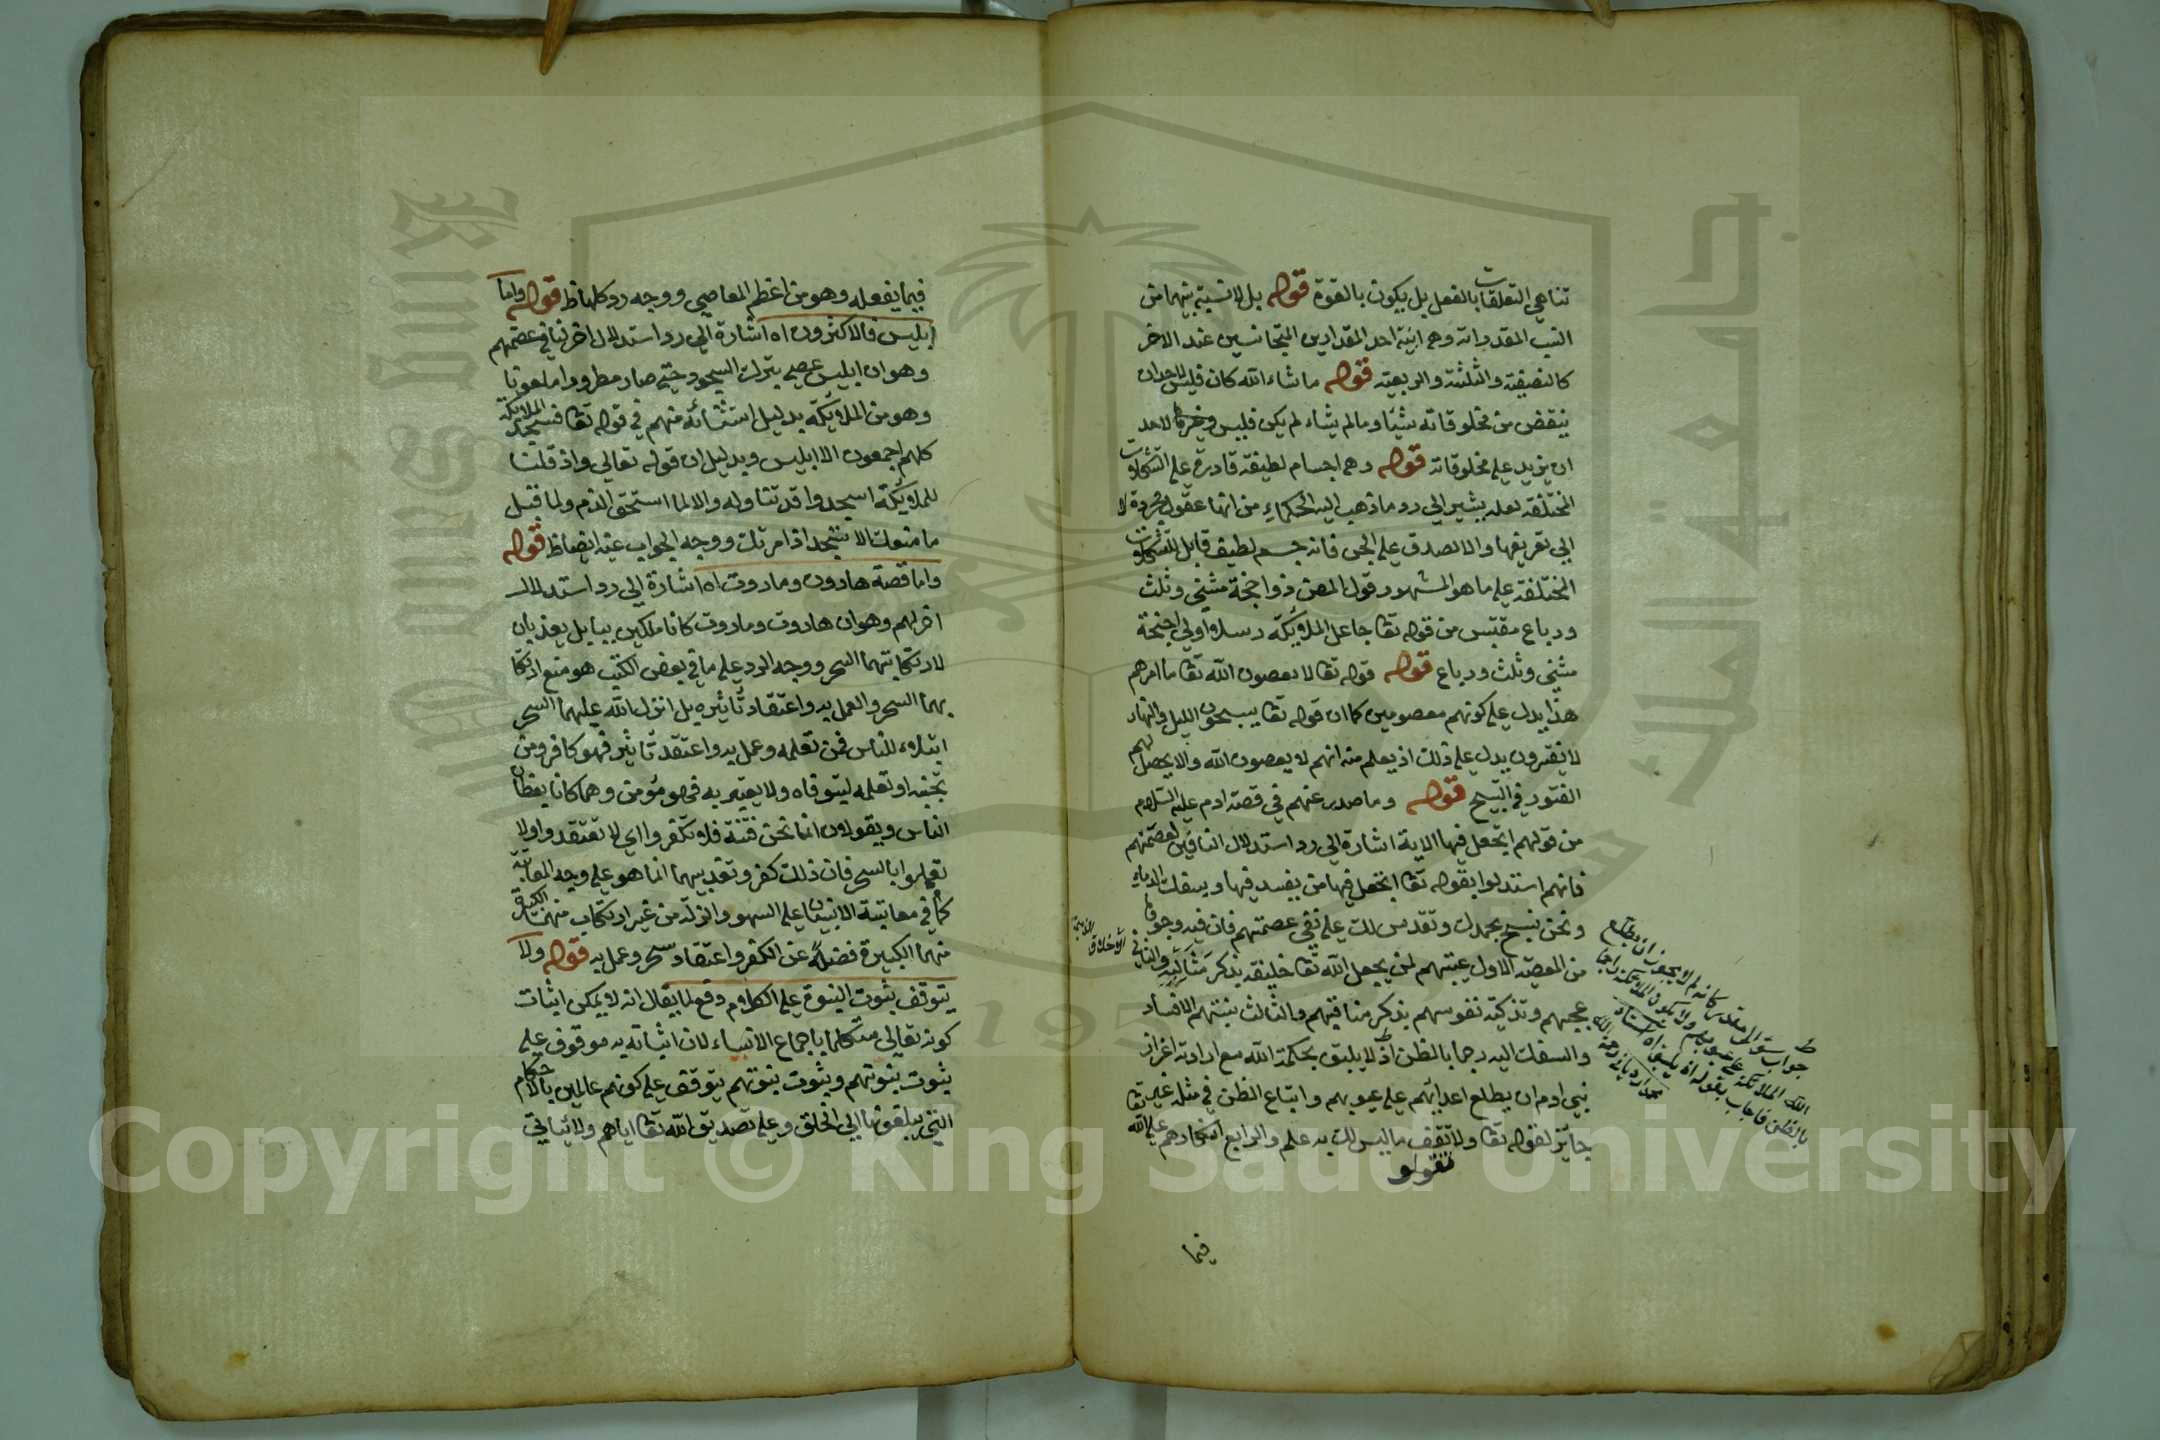 تناهي التعلقات بالفعل بل يكون بالقوة قوله بل لا نسبة بينهما من
النسب المقدراته وهي ابنية احد المقدارين المتجانسين عند الاخر
كالنصفية والثلثية والربعية قوله ما شاء الله كان فليس لاحد ان
ينقض من مخلوقاته شيئا وما لم يشاء لم يكن فليس لاحد
ان يزيد على مخلوقاته قوله وهي اجسام لطيفة قادرة على التشكلات
المختلفة لعله يشير الى رد ما ذهب اليه الحكماء من انها عقول مجردة لا
الى تعريفها والا لصدق على الجن فانه جسم لطيف قابل للتشكلات
المختلفة على ما هو المشهور وقول المص ذوا اجنحة مثنى وثلث
ورباع مقتبس من قوله تعا جاعل الملائكة رسلا اولي اجنحة
مثنى وثلث ورباع قوله قوله تعا لا يعصون الله تعا ما امرهم
هذا يدل على كونهم معصومين كما ان قوله تعا يسبحون الليل والنهار
لا يفترون يدل على ذلك اذ يعلم منه انهم لا يعصون الله والا يحصل لهم
الفتور في التسبيح قوله وما صدر عنهم في قصة ادم عليه السلام
من قولهم اتجعل فيها الاية اشارة الى رد استدلال النافين لعصمتهم
فانهم استدلوا بقوله تعا اتجعل فيها من يفسد فيها ويسفك الدماء
ونحن نسبح بحمدك ونقدس لك على نفى عصمتهم فان فيه وجوها
من المعصية الاول غيبتهم لمن يجعل الله تعا خليفة بذكر مثالبه والثاني
عجبهم وتذكية نفوسهم بذكر مناقبهم والثالث نسبتهم الافساد
والسفك اليه رجما بالظن اذ لا يليق بحكمة الله مع ارادته اعزاز
بني ادم ان يطلع اعدائهم على عيوبهم واتباع الظن في مثله غير
جائز لقوله تعا ولا تقف ما ليس لك به علم والرابع انكارهم على الله تعا
فيما
الاخلاق
جواب سؤال مقدر كانه لم لا يجوز ان يطلع
الله الملائكة على عيوبهم ولا يكون الملائكة راجما
بالظن فاجاب بقوله اذ لا يليق
فيما يفعله وهو من اعظم المعاصي ووجه رد كلها ظ قوله واما
ابليس فالاكثرون اه اشارة الى رد استدلال اخر لنافي عصمتهم
وهو ان ابليس عصى بترك السجود حتى صار مطرودا ملعونا
وهو من الملائكة بدليل استثنائه منهم في قوله تعا فسجد الملائكة
كلهم اجمعون الا ابليس وبدليل ان قوله تعالى واذ قلنا
للملائكة اسجدوا قد تناوله والا لما استحق الذم ولما قيل
ما منعك الا تسجد اذ امرتك ووجه الجواب عنه ايضا ظ قوله
واما قصة هاروت وماروت اه اشارة الى رد استدلال
اخر لهم وهو ان هاروت وماروت كانا ملكين ببابل يعذبان
لارتكابهما السحر ووجه الرد على ما في بعض الكتب هو منع ارتكا
بهما السحر والعمل به واعتقاد تأثيره بل انزل الله عليهما السحر
ابتلاء للناس فمن تعلمه وعمل به واعتقد تأثيره فهو كافر ومن
تجنبه او تعلمه ليتوقاه ولا يغتر به فهو مؤمن وهما كانا يعظان
الناس ويقولان انما نحن فتنة فلا تكفر واي لا تعتقدوا ولا
تعملوا بالسحر فان ذلك كفر وتعذيبهما انما هو على وجه المعاتبة
كما في معاتبة الانبياء على السهو والزلة من غير ارتكاب منهما الكبيرة
منهما الكبيرة فضلا عن الكفر واعتقاد سحر وعمل به قوله ولا
يتوقف ثبوت النبوة على الكلام دفع لما يقال انه لا يمكن اثبات
كونه تعالى متكلما باجماع الانبياء لان اثباته به موقوف على
ثبوت نبوتهم وثبوت نبوتهم يتوقف على كونهم عالمين بالاحكام
التي يبلغونها الى الخلق وعلى تصديق الله تعا اياهم ولا يتأتى